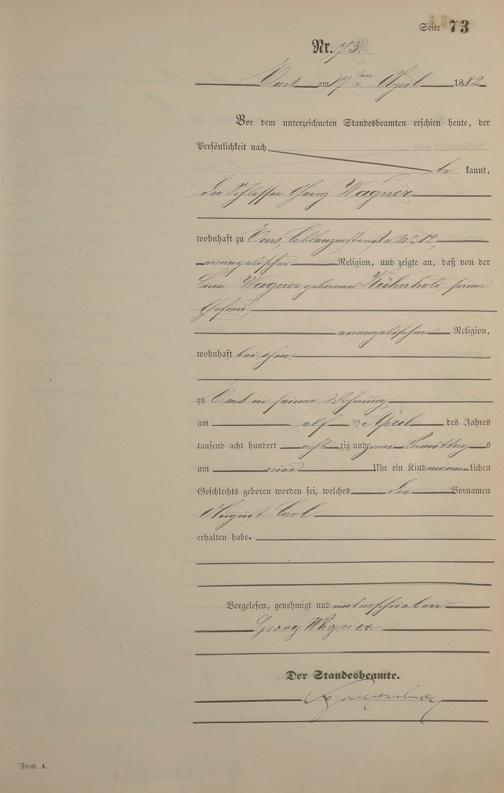 Seite 73
Nr. 73.
Ems am 17ten April 1882
Vor dem unterzeichneten Standesbeamten erschien heute, der
Persönlichkeit nach
be kannt,
der Schlosser Georg Wagner,
wohnhaft zu Ems, Coblenzerstraße No 12,
evangelischer Religion, und zeigte an, daß von der
Wagner geborenen Kühnholz, seiner
Ehefrau,
evangelischer Religion,
wohnhaft bei ihm,
zu Ems in seiner Wohnung
am elf ten April des Jahres
tausend acht hundert acht zig und zwei Vormittags
um vier Uhr ein Kind männ lichen
Geschlechts geboren worden sei, welches die Vornamen
August Carl
erhalten habe.
Vorgelesen, genehmigt und unterschrieben
Georg Wagner.
Der Standesbeamte.
Form. A.